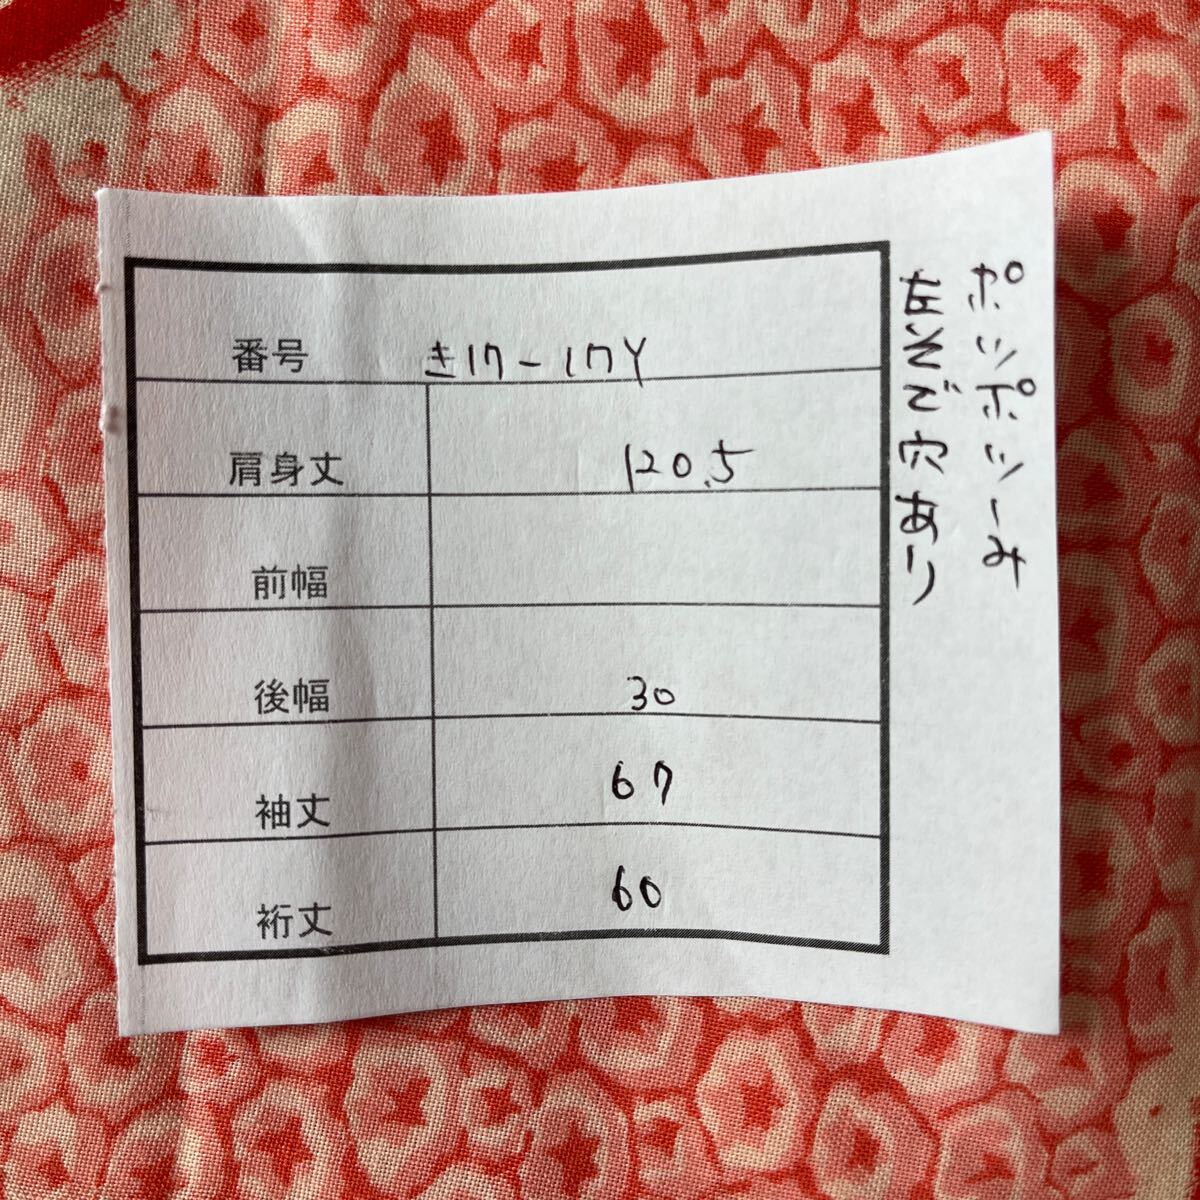 番号 き17-17Y
肩身丈 120.5
前幅
後幅 30
袖丈 67
裄丈 60
ポツポツーみ
左そで穴あり